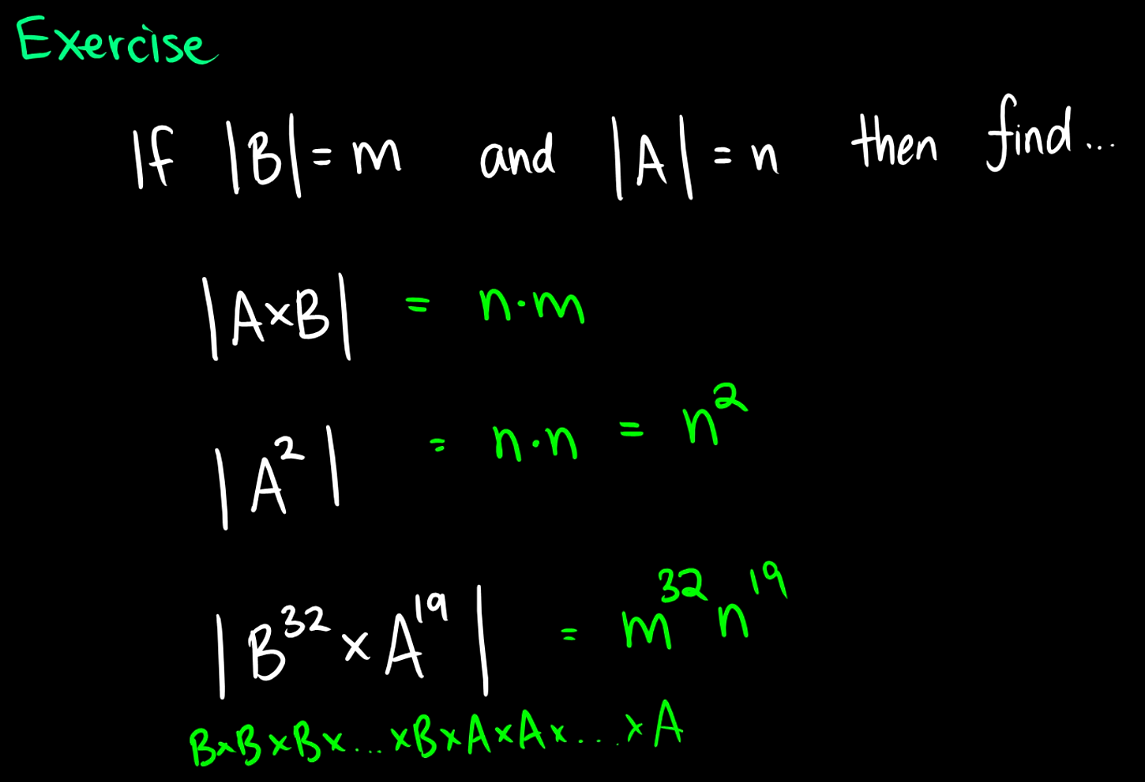 Exercise
If |B| = m and |A| = n then find...
|A×B| = n·m
|A²| = n·n = n²
|B³² × A¹⁹| = m³² n¹⁹
B×B×B×...×B×A×A×...×A